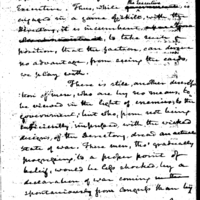 the Executive
Executive. Thus, while
engaged in a game of skill, with the
Directory, it is incumbent
to take such a
position, that the faction, can derive
no advantage, from seeing the cards,
we play with.
There is also, another descrip
tion of men, who are by no means, to
be viewed in the light of enemies, to the
government; but who, from not being
sufficiently impressed, with the wicked
designs, of the Directory, dread an actual
state of war. These men, tho' gradually
progressing, to a proper point of
belief, would be less shocked, by a
declaration of war, coming
spontaneously from Congress than by